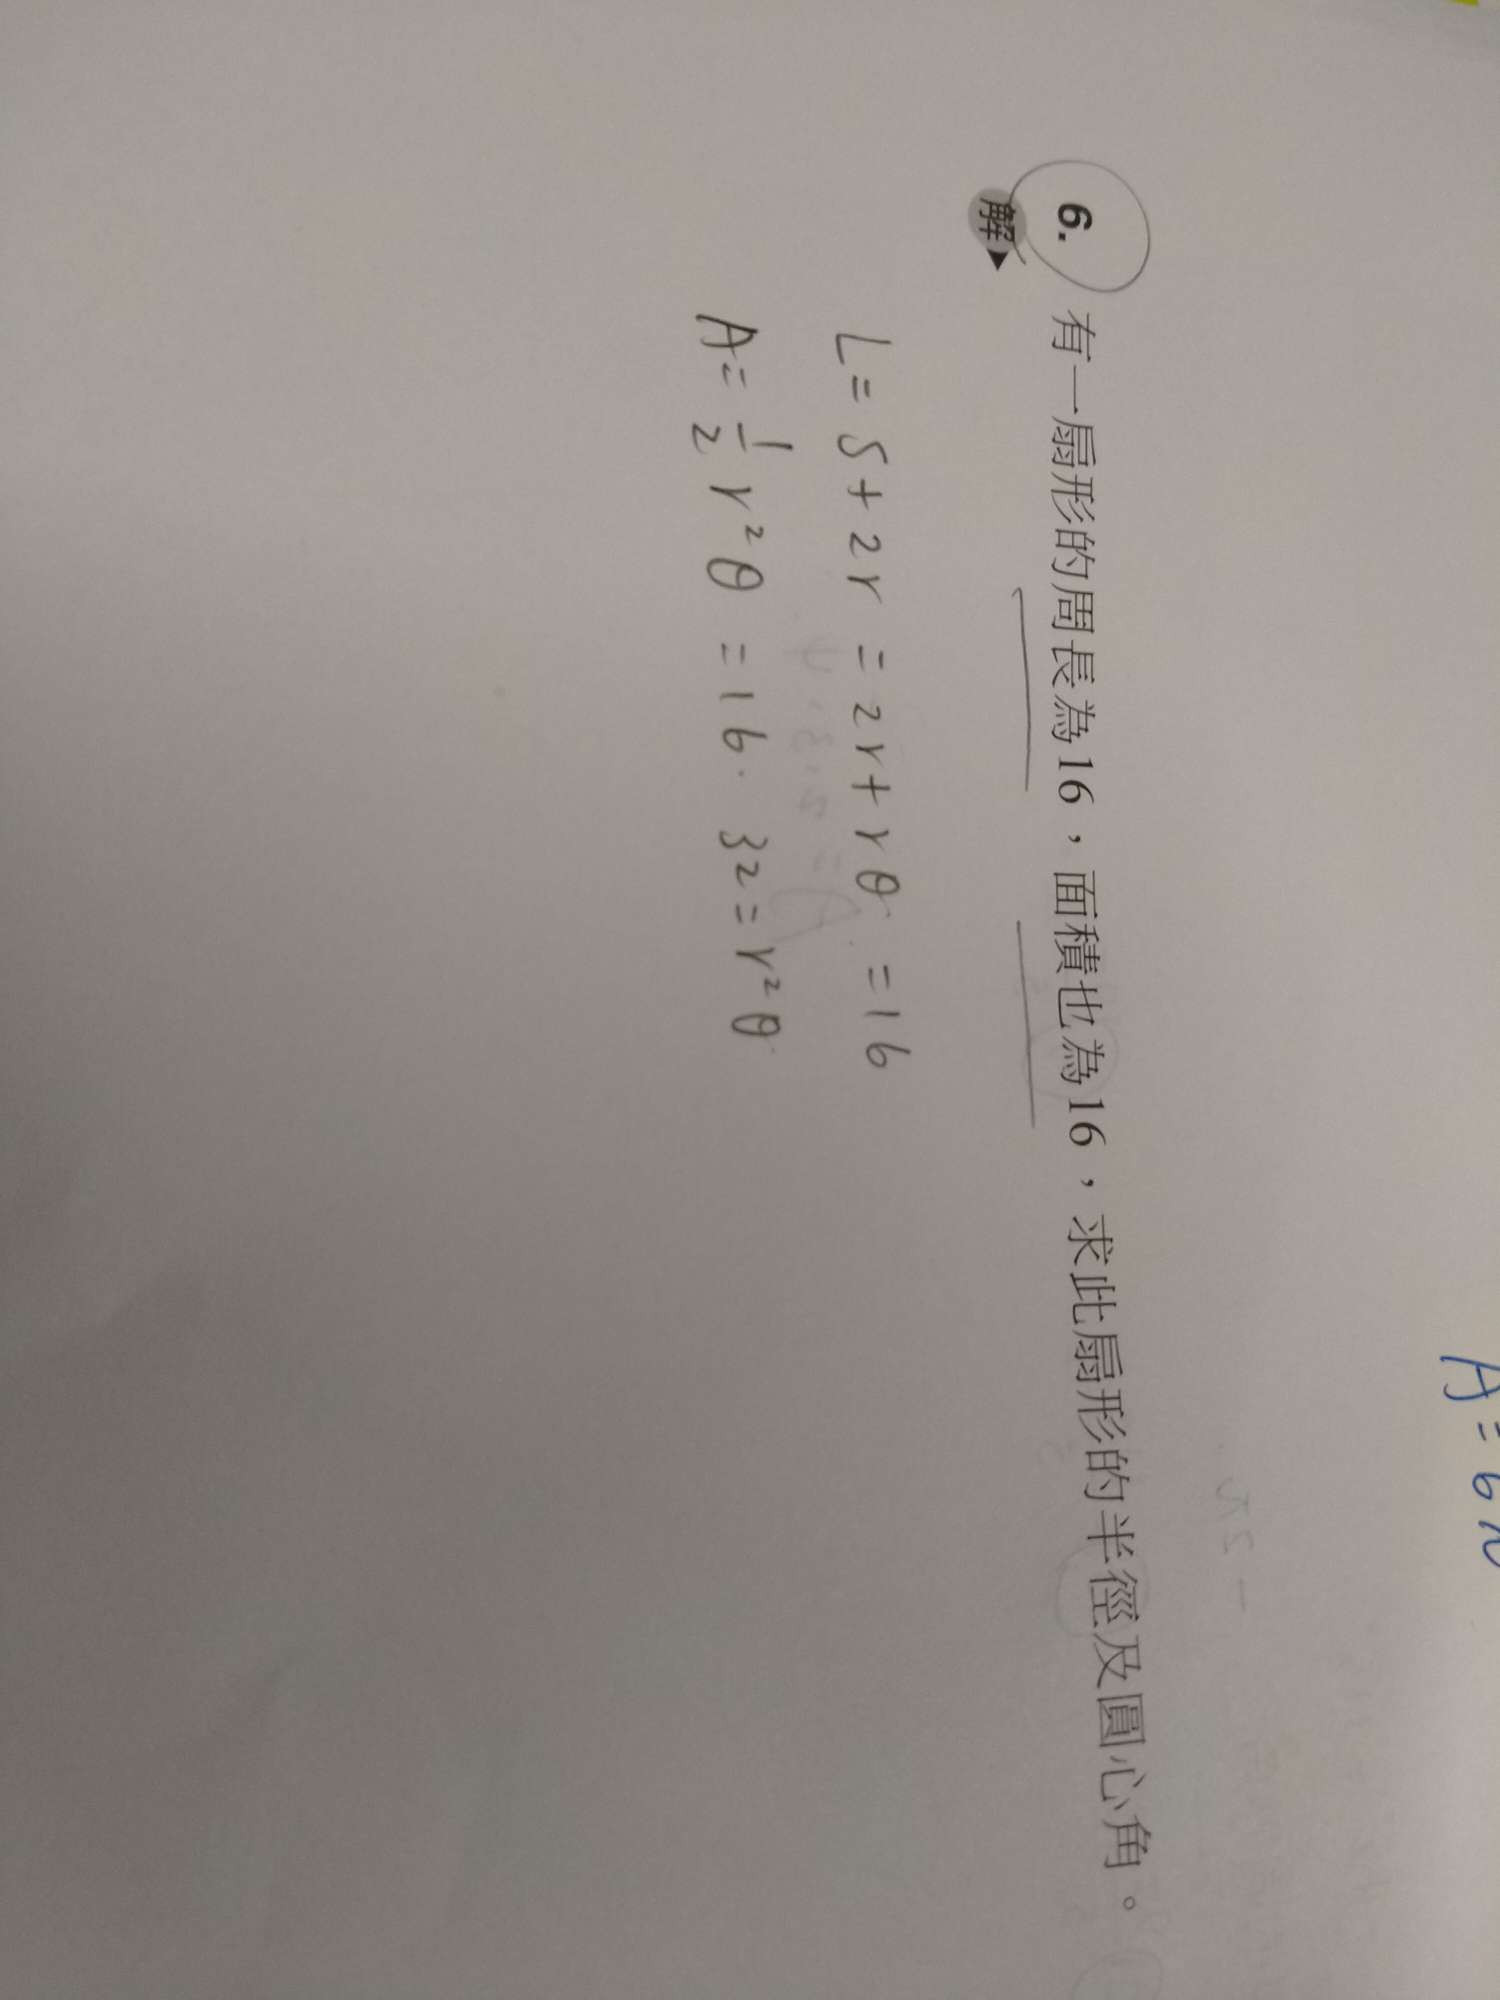 A = 6π
6. 有一扇形的周長為16，面積也為16，求此扇形的半徑及圓心角。
解▶
L = S + 2r = 2r + rθ = 16
A = 1/2 r²θ = 16. 32 = r²θ